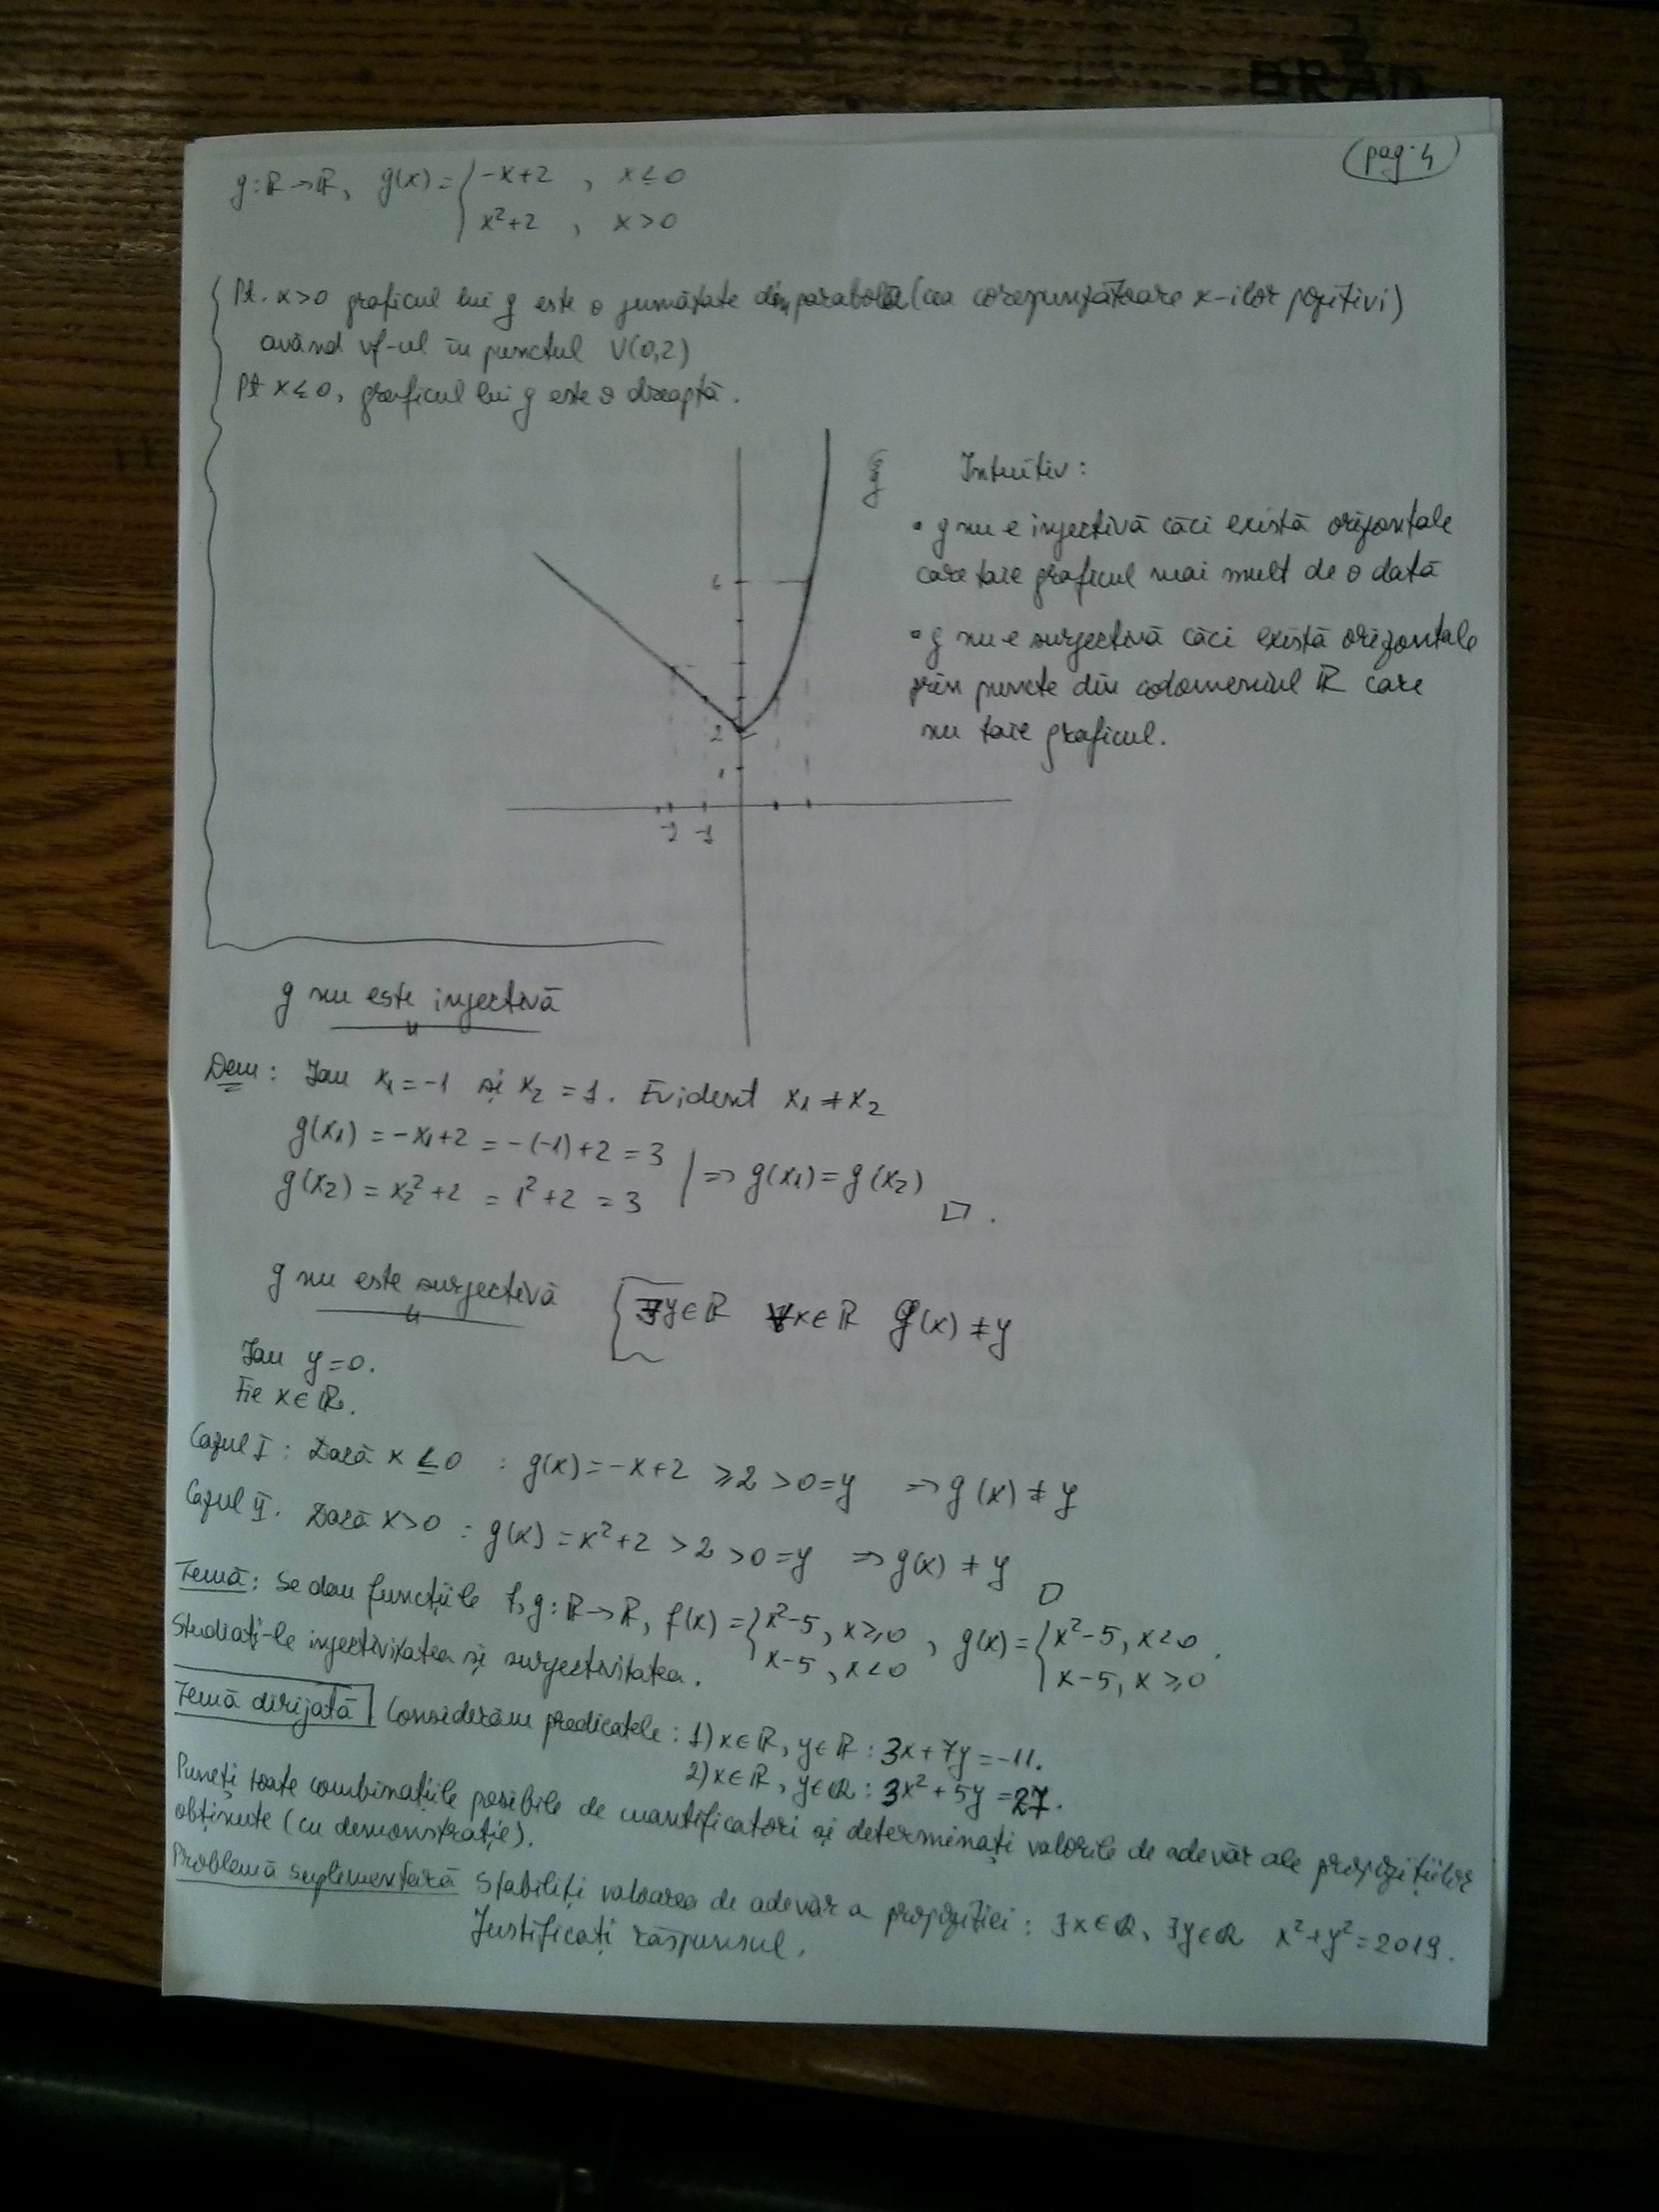 BRAD
pag. 4
g: ℝ → ℝ, g(x) = { -x+2 , x ≤ 0
x²+2 , x > 0
Pt. x>0 graficul lui g este o jumătate din parabola (cea corespunzătoare x-ilor pozitivi)
având vf-ul în punctul V(0,2)
Pt x ≤ 0, graficul lui g este o dreaptă.
g
6
2
1
-2 -1
Intuitiv:
• g nu e injectivă căci există orizontale
care taie graficul mai mult de o dată
• g nu e surjectivă căci există orizontale
prin puncte din codomeniul ℝ care
nu taie graficul.
g nu este injectivă
Dem: Iau x₁ = -1 și x₂ = 1. Evident x₁ ≠ x₂
g(x₁) = -x₁+2 = -(-1)+2 = 3
g(x₂) = x₂²+2 = 1²+2 = 3 | => g(x₁) = g(x₂) □.
g nu este surjectivă { ∃y∈ℝ ∀x∈ℝ g(x) ≠ y
Iau y=0.
Fie x∈ℝ.
Cazul I: Dacă x ≤ 0 : g(x) = -x+2 ≥ 2 > 0 = y => g(x) ≠ y
Cazul II. Dacă x>0 : g(x) = x²+2 > 2 > 0 = y => g(x) ≠ y □
Temă: Se dau funcțiile f, g: ℝ → ℝ, f(x) = { x²-5, x ≥ 0 , g(x) = { x²-5, x<0 .
x-5, x<0 x-5, x ≥ 0
Studiați-le injectivitatea și surjectivitatea.
Temă dirijată Considerăm predicatele: 1) x∈ℝ, y∈ℝ : 3x+7y = -11.
2) x∈ℝ, y∈ℚ : 3x²+5y = 27.
Puneți toate combinațiile posibile de cuantificatori și determinați valorile de adevăr ale propozițiilor
obținute (cu demonstrație).
Problemă suplementară Stabiliți valoarea de adevăr a propoziției: ∃x∈ℚ, ∃y∈ℚ x²+y² = 2019.
Justificați răspunsul.